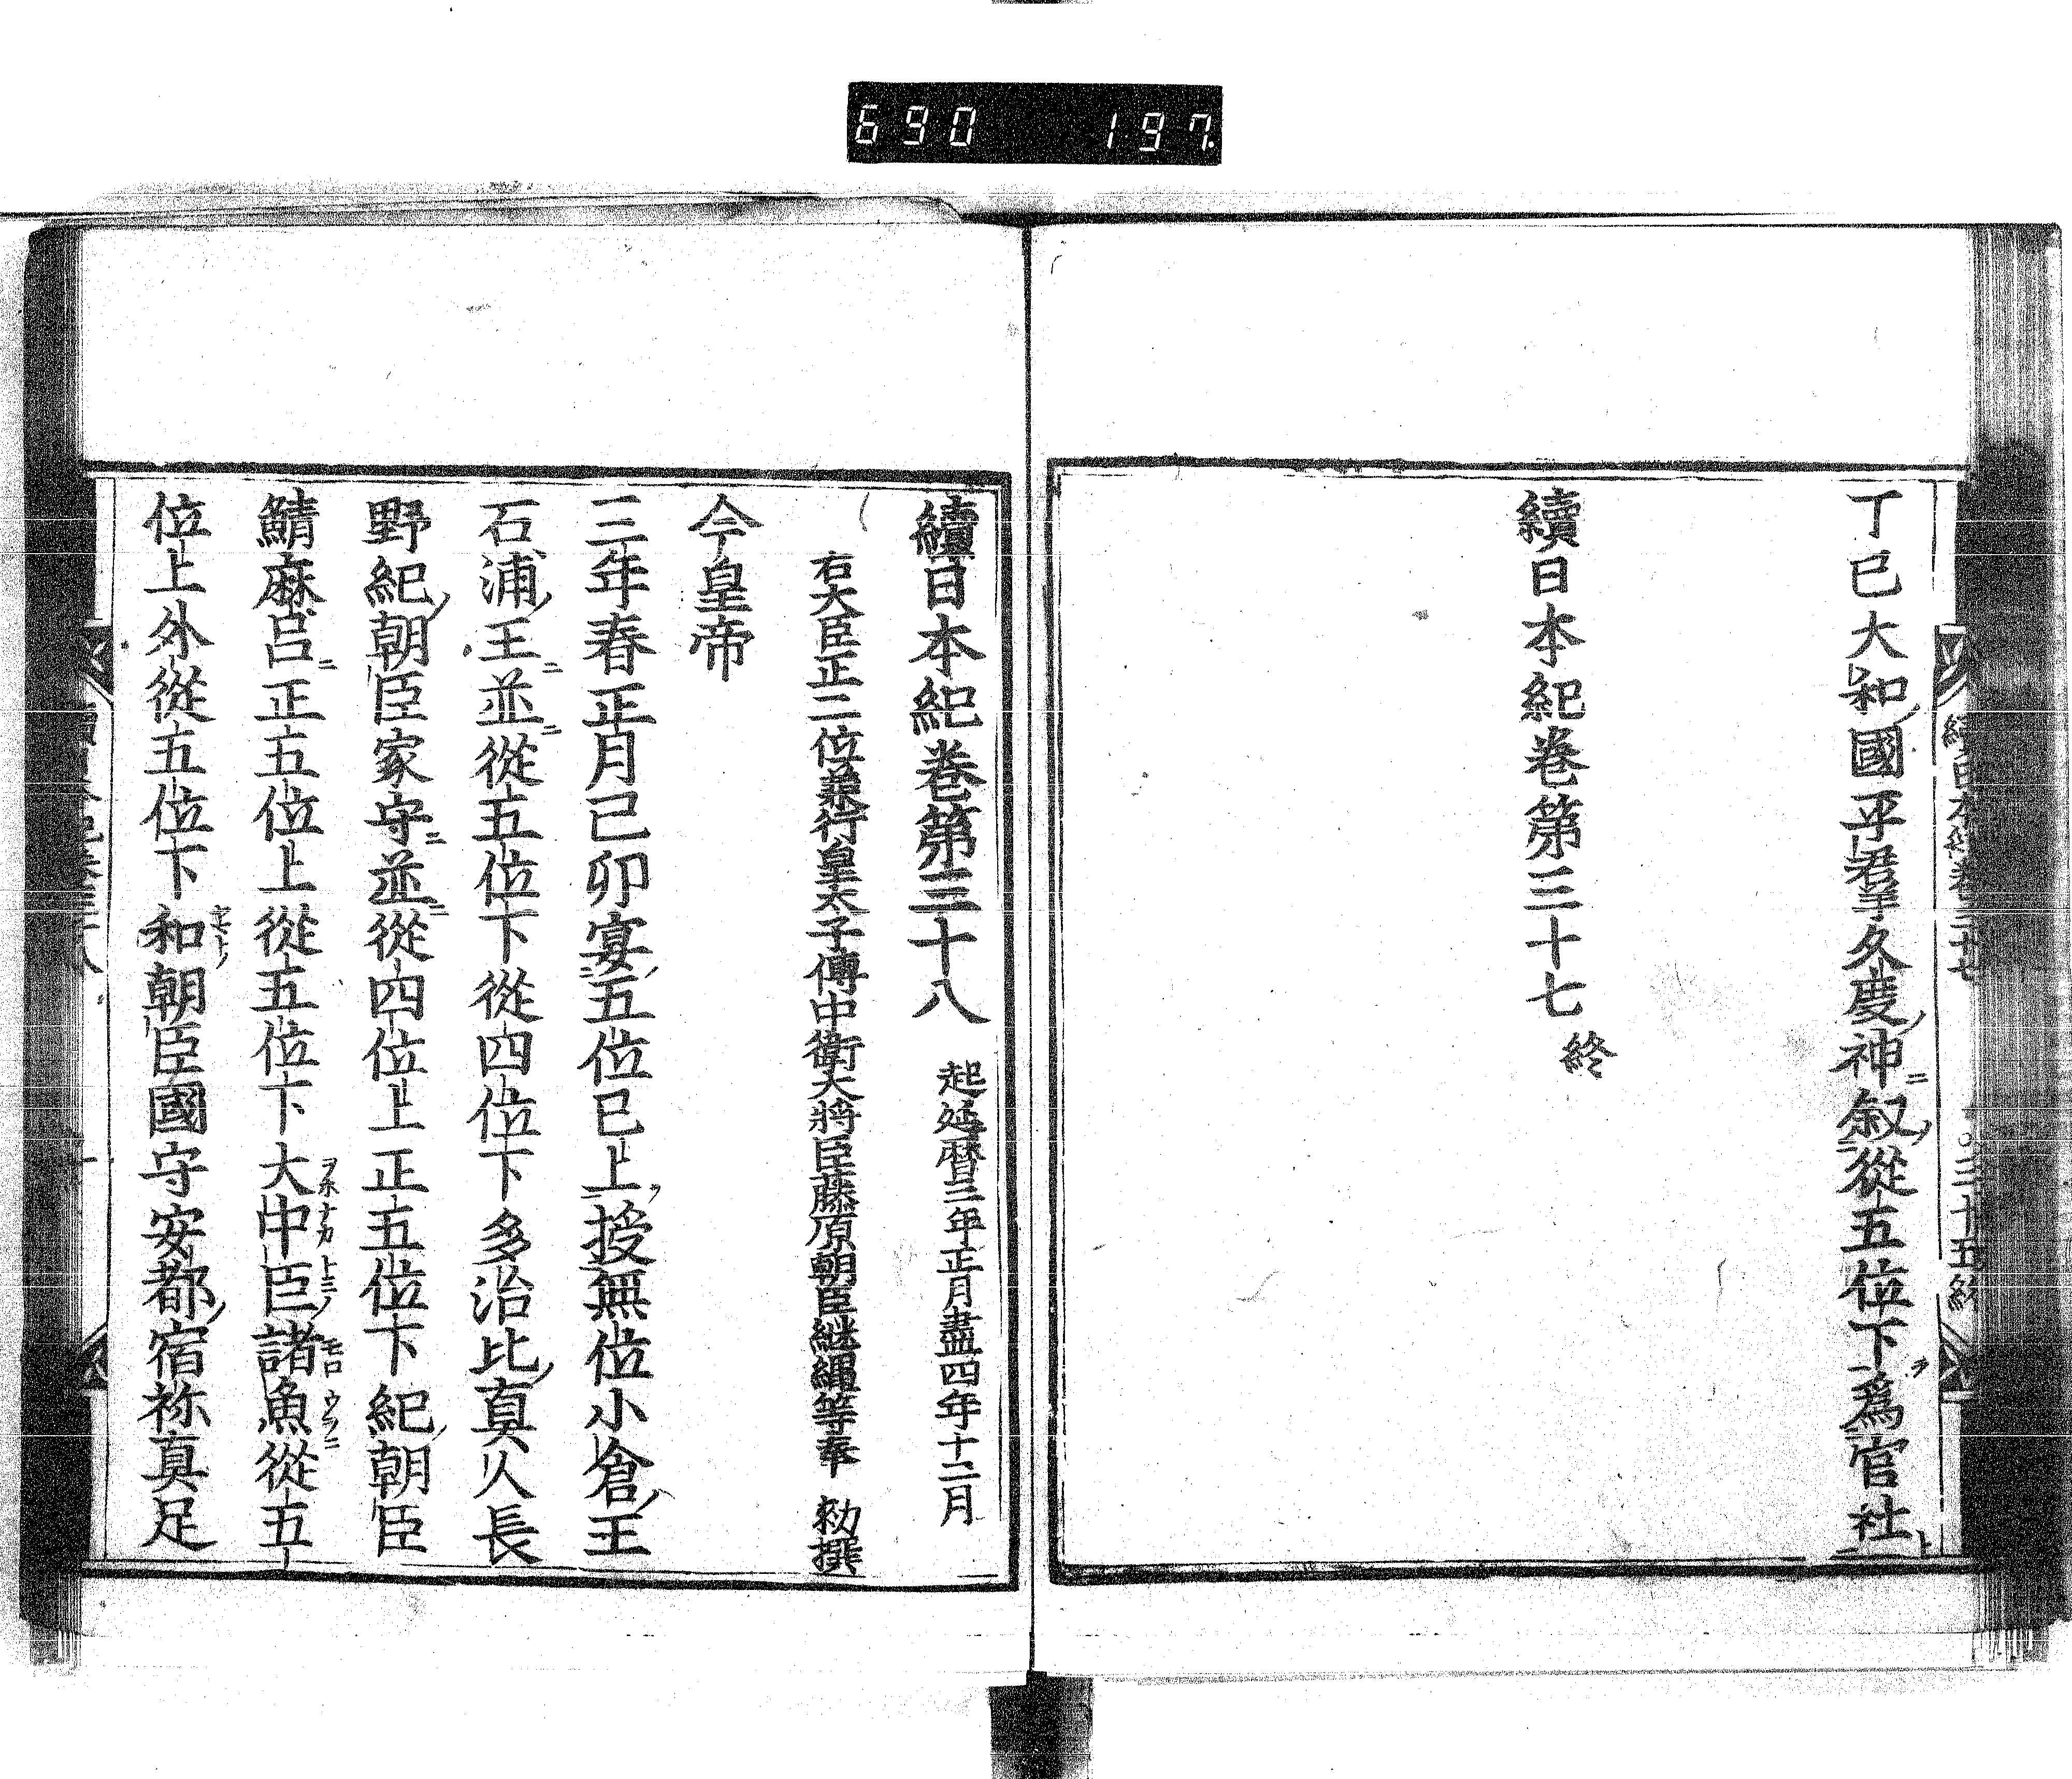 690 197
丁巳大和國平群久度神叙從五位下爲官社
續日本紀卷第三十七 終
續日本紀卷第三十八 起延暦三年正月盡四年十二月
右大臣正二位兼行皇太子傅中衛大將臣藤原朝臣継縄等奉 勅撰
今皇帝
三年春正月己卯宴五位已上授無位小倉王
石浦王並從五位下從四位下多治比真人長
野紀朝臣家守並從四位上正五位下紀朝臣
鯖麻呂正五位上從五位下大中臣諸魚從五
位上外從五位下和朝臣國守安都宿祢真足